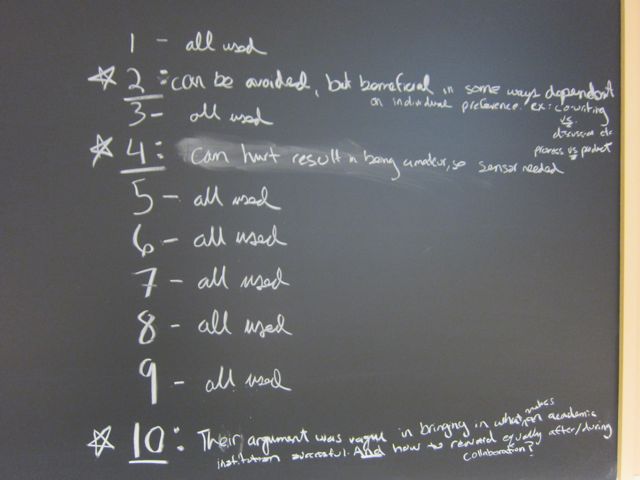 1 - all used
☆ 2: can be avoided, but beneficial in some ways dependent
on individual preference. ex: cowriting
vs.
discussion etc
process vs product
3 - all used
☆ 4: can hurt result in being amateur, so sensor needed
5 - all used
6 - all used
7 - all used
8 - all used
9 - all used
☆ 10: Their argument was vague in bringing in what makes an academic
institution successful. And how to reward equally after/during
collaboration?